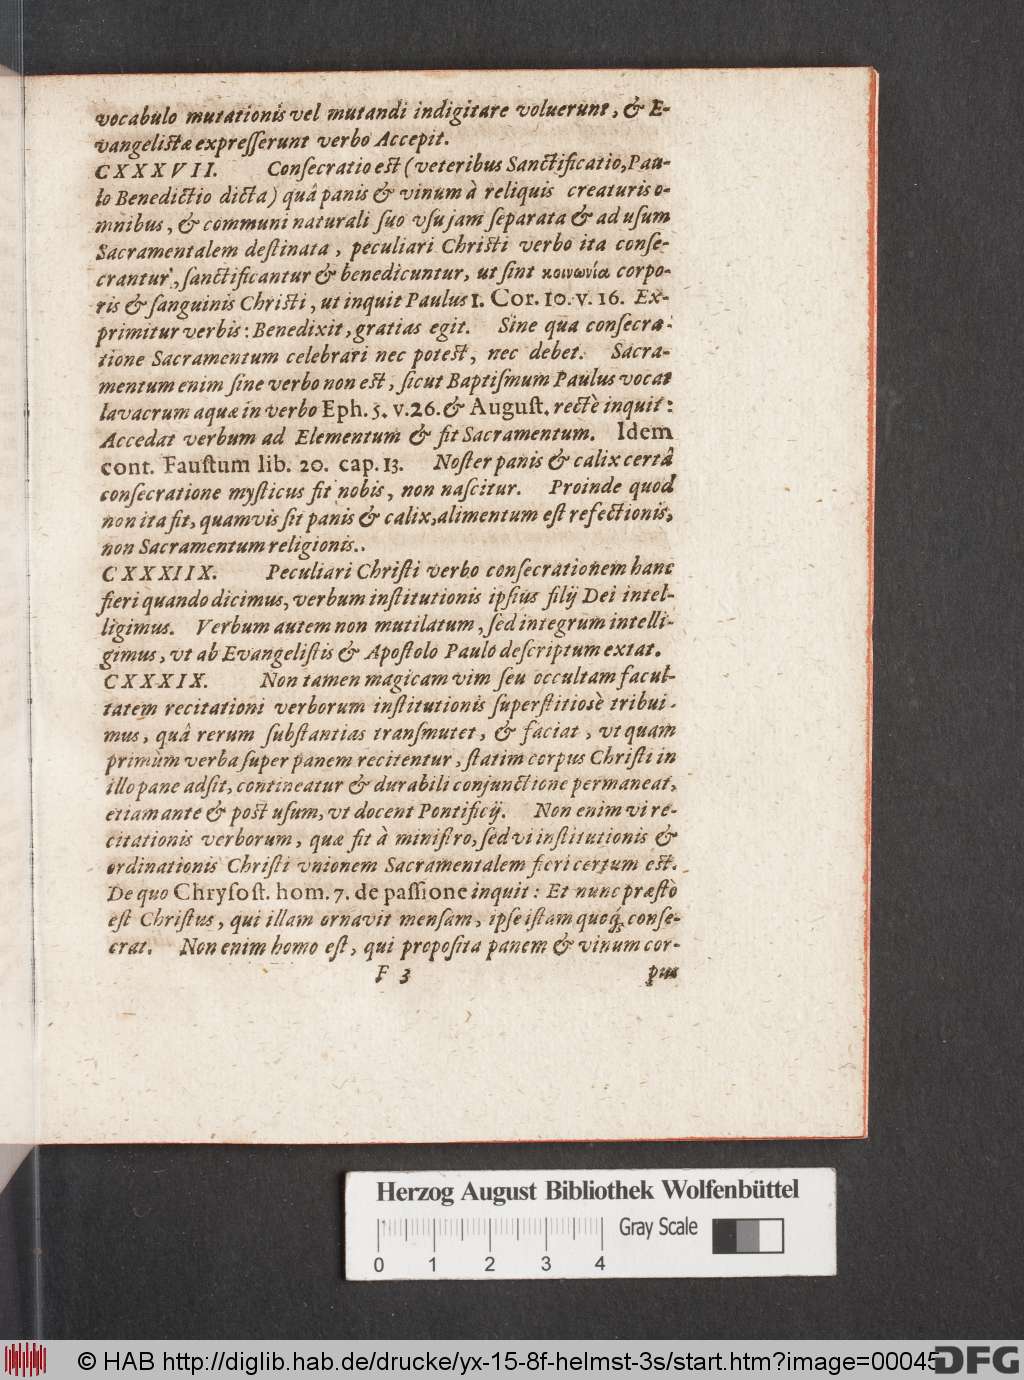 vocabulo mutationis vel mutandi indigitare voluerunt, & E-
vangelistæ expreſſerunt verbo Accepit.
CXXXVII. Conſecratio est (veteribus Sanctificatio, Pau-
lo Benedictio dicta) quâ panis & vinum à reliquis creaturis o-
mnibus, & communi naturali ſuo vſu jam ſeparata & ad uſum
Sacramentalem deſtinata, peculiari Christi verbo ita conſe-
crantur, ſanctificantur & benedicuntur, ut ſint κοινωνία corpo-
ris & ſanguinis Christi, ut inquit Paulus 1. Cor. 10. v. 16. Ex-
primitur verbis: Benedixit, gratias egit. Sine qua conſecra-
tione Sacramentum celebrari nec potest, nec debet. Sacra-
mentum enim ſine verbo non est, ſicut Baptiſmum Paulus vocat
lavacrum aquæ in verbo Eph. 5. v. 26. & Auguſt. rectè inquit:
Accedat verbum ad Elementum & fit Sacramentum. Idem
cont. Fauſtum lib. 20. cap. 13. Noſter panis & calix certâ
conſecratione myſticus fit nobis, non naſcitur. Proinde quod
non ita fit, quamvis ſit panis & calix, alimentum eſt refectionis,
non Sacramentum religionis..
CXXXIIX. Peculiari Chriſti verbo conſecrationem hanc
fieri quando dicimus, verbum inſtitutionis ipſius filij Dei intel-
ligimus. Verbum autem non mutilatum, ſed integrum intelli-
gimus, vt ab Evangeliſtis & Apoſtolo Paulo deſcriptum extat.
CXXXIX. Non tamen magicam vim ſeu occultam facul-
tatem recitationi verborum inſtitutionis ſuperſtitiosè tribui-
mus, quâ rerum ſubſtantias tranſmutet, & faciat, vt quam
primùm verba ſuper panem recitentur, ſtatim corpus Chriſti in
illo pane adſit, contineatur & durabili conjunctione permaneat,
etiam ante & post uſum, vt docent Pontificij. Non enim vi re-
citationis verborum, quæ fit à miniſtro, ſed vi inſtitutionis &
ordinationis Chriſti vnionem Sacramentalem fieri certum est.
De quo Chryſoſt. hom. 7. de paſſione inquit: Et nunc præſtò
eſt Chriſtus, qui illam ornavit menſam, ipſe iſtam quoq; conſe-
crat. Non enim homo eſt, qui propoſita panem & vinum cor-
F 3 pus
Herzog August Bibliothek Wolfenbüttel
Gray Scale
0 1 2 3 4
© HAB http://diglib.hab.de/drucke/yx-15-8f-helmst-3s/start.htm?image=00045
DFG